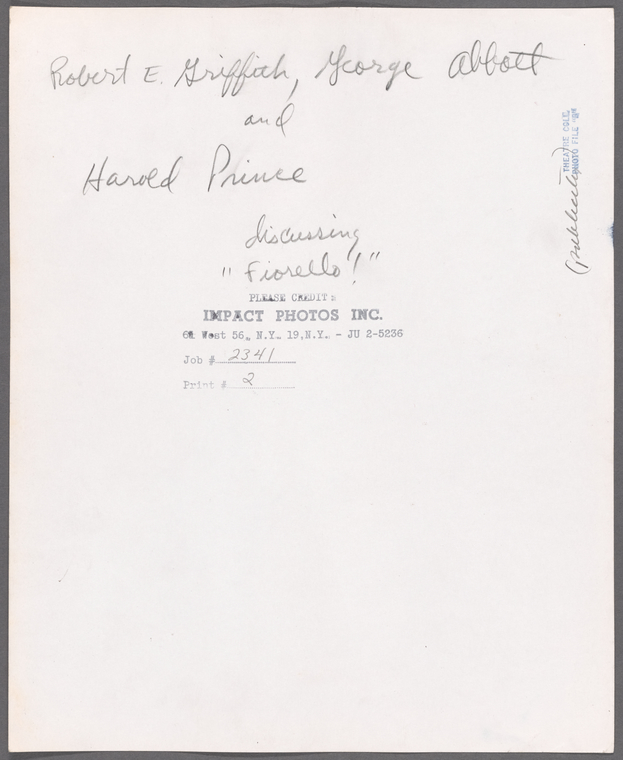 Robert E. Griffith, George Abbott
and
Harold Prince
discussing
"Fiorello!"
PLEASE CREDIT:
IMPACT PHOTOS INC.
West 56, N.Y. 19, N.Y. - JU 2-5236
Job # 2341
Print # 2
THEATRE COLL.
PHOTO FILE "B"
(publicity)